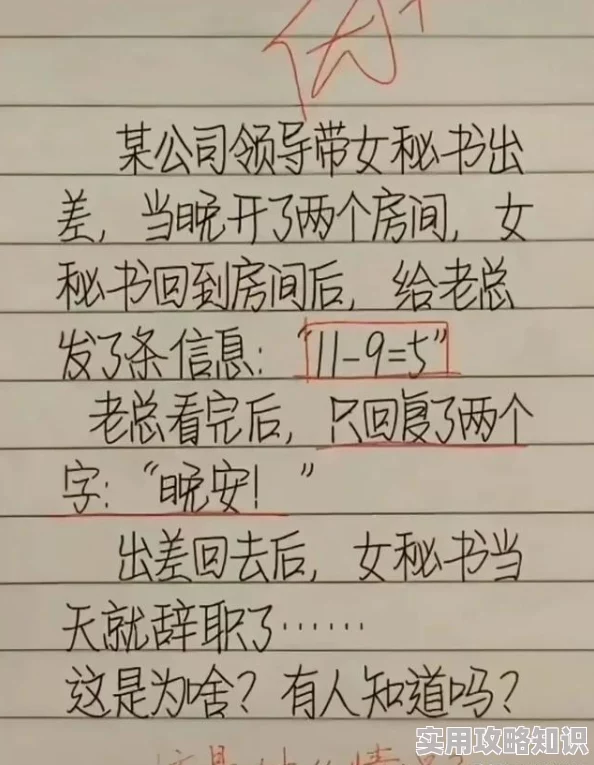 某公司领导带女秘书出
差，当晚开了两个房间，女
秘书回到房间后，给老总
发了条信息：“11-9=5”
老总看完后，只回复了两个
字：“晚安！”
出差回去后，女秘书当
天就辞职了……
这是为啥？有人知道吗？
实用攻略知识